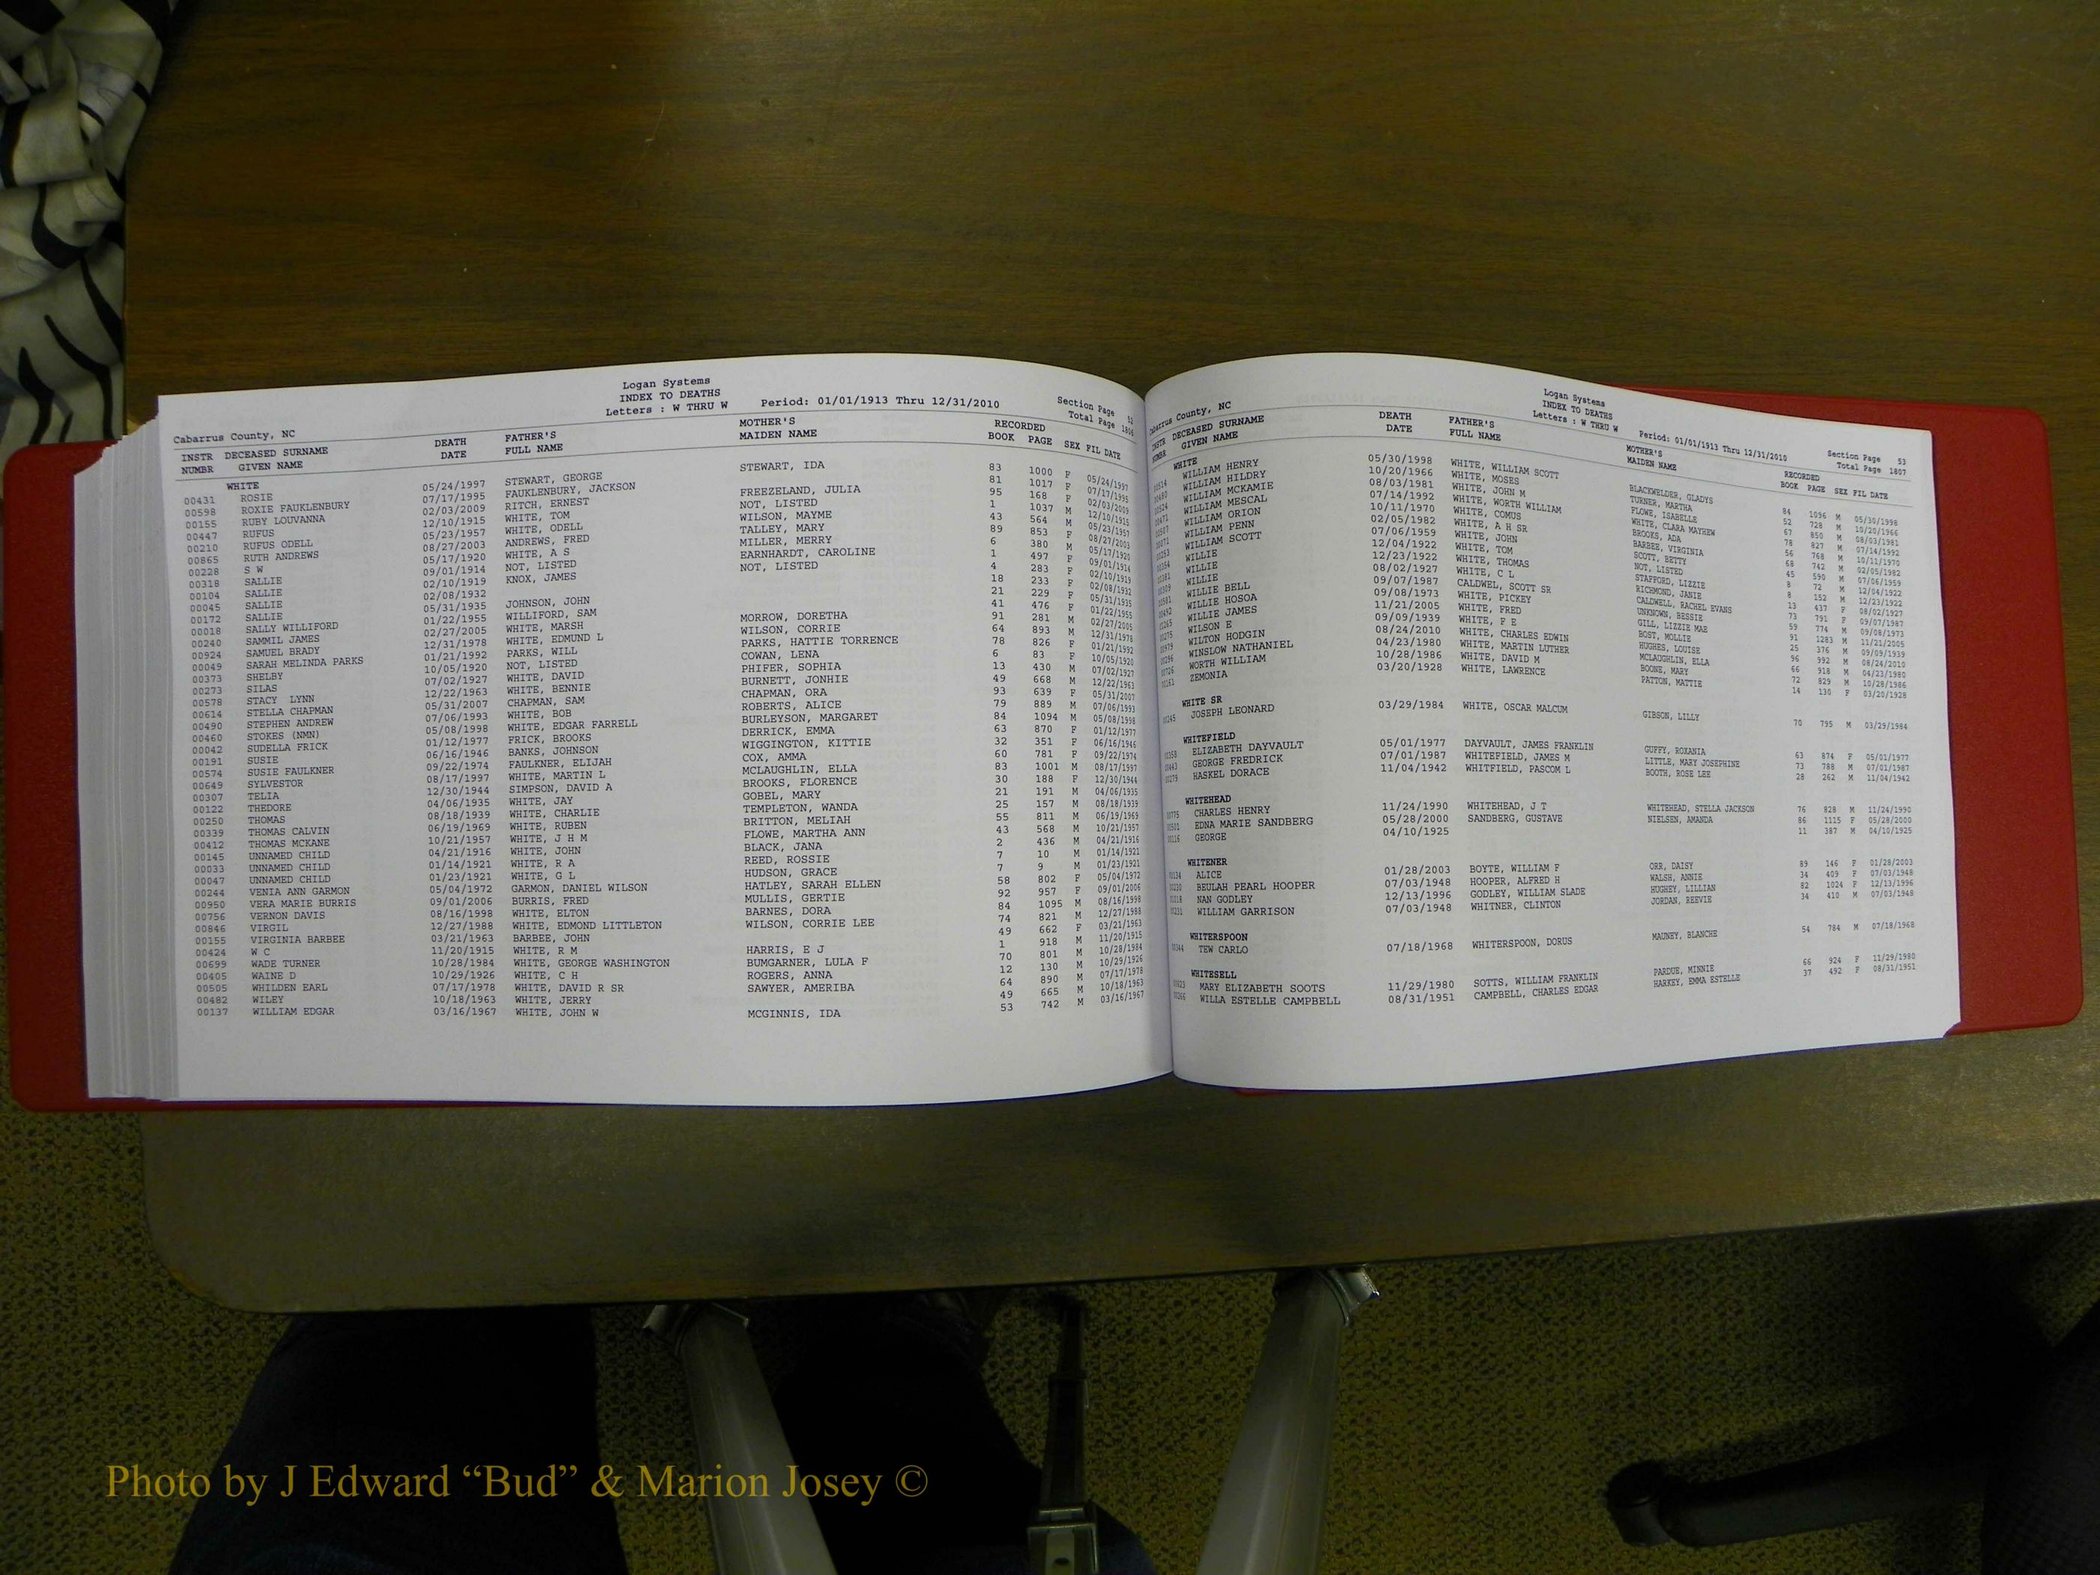 Logan Systems
INDEX TO DEATHS
Cabarrus County, NC Letters : W THRU W Period: 01/01/1913 Thru 12/31/2010 Section Page 52
Total Page 1806
INSTR DECEASED SURNAME DEATH FATHER'S MOTHER'S RECORDED
NUMBR GIVEN NAME DATE FULL NAME MAIDEN NAME BOOK PAGE SEX FIL DATE
WHITE
00431 ROSIE 05/24/1997 STEWART, GEORGE STEWART, IDA 83 1000 F 05/24/1997
00598 ROXIE FAUKLENBURY 07/17/1995 FAUKLENBURY, JACKSON 81 1017 F 07/17/1995
00155 RUBY LOUVANNA 02/03/2009 RITCH, ERNEST FREEZELAND, JULIA 95 168 F 02/03/2009
00447 RUFUS 12/10/1915 WHITE, TOM NOT, LISTED 1 1037 M 12/10/1915
00210 RUFUS ODELL 05/23/1957 WHITE, ODELL WILSON, MAYME 43 564 M 05/23/1957
00865 RUTH ANDREWS 08/27/2003 ANDREWS, FRED TALLEY, MARY 89 853 F 08/27/2003
00228 S W 05/17/1920 WHITE, A S MILLER, MERRY 6 380 M 05/17/1920
00318 SALLIE 09/01/1914 NOT, LISTED EARNHARDT, CAROLINE 1 497 F 09/01/1914
00104 SALLIE 02/10/1919 KNOX, JAMES NOT, LISTED 4 283 F 02/10/1919
00045 SALLIE 02/08/1932 18 233 F 02/08/1932
00172 SALLIE 05/31/1935 JOHNSON, JOHN 21 229 F 05/31/1935
00018 SALLY WILLIFORD 01/22/1955 WILLIFORD, SAM 41 476 F 01/22/1955
00240 SAMMIL JAMES 02/27/2005 WHITE, MARSH MORROW, DORETHA 91 281 M 02/27/2005
00924 SAMUEL BRADY 12/31/1978 WHITE, EDMUND L WILSON, CORRIE 64 893 M 12/31/1978
00049 SARAH MELINDA PARKS 01/21/1992 PARKS, WILL PARKS, HATTIE TORRENCE 78 826 F 01/21/1992
00373 SHELBY 10/05/1920 NOT, LISTED COWAN, LENA 6 83 F 10/05/1920
00273 SILAS 07/02/1927 WHITE, DAVID PHIFER, SOPHIA 13 430 M 07/02/1927
00578 STACY LYNN 12/22/1963 WHITE, BENNIE BURNETT, JONHIE 49 668 M 12/22/1963
00614 STELLA CHAPMAN 05/31/2007 CHAPMAN, SAM CHAPMAN, ORA 93 639 F 05/31/2007
00490 STEPHEN ANDREW 07/06/1993 WHITE, BOB ROBERTS, ALICE 79 889 M 07/06/1993
00460 STOKES (NMN) 05/08/1998 WHITE, EDGAR FARRELL BURLEYSON, MARGARET 84 1094 M 05/08/1998
00042 SUDELLA FRICK 01/12/1977 FRICK, BROOKS DERRICK, EMMA 63 870 F 01/12/1977
00191 SUSIE 06/16/1946 BANKS, JOHNSON WIGGINGTON, KITTIE 32 351 F 06/16/1946
00574 SUSIE FAULKNER 09/22/1974 FAULKNER, ELIJAH COX, AMMA 60 781 F 09/22/1974
00649 SYLVESTOR 08/17/1997 WHITE, MARTIN L MCLAUGHLIN, ELLA 83 1001 M 08/17/1997
00307 TELIA 12/30/1944 SIMPSON, DAVID A BROOKS, FLORENCE 30 188 F 12/30/1944
00122 THEDORE 04/06/1935 WHITE, JAY GOBEL, MARY 21 191 M 04/06/1935
00250 THOMAS 08/18/1939 WHITE, CHARLIE TEMPLETON, WANDA 25 157 M 08/18/1939
00339 THOMAS CALVIN 06/19/1969 WHITE, RUBEN BRITTON, MELIAH 55 811 M 06/19/1969
00412 THOMAS MCKANE 10/21/1957 WHITE, J H M FLOWE, MARTHA ANN 43 568 M 10/21/1957
00145 UNNAMED CHILD 04/21/1916 WHITE, JOHN BLACK, JANA 2 436 M 04/21/1916
00033 UNNAMED CHILD 01/14/1921 WHITE, R A REED, ROSSIE 7 10 M 01/14/1921
00047 UNNAMED CHILD 01/23/1921 WHITE, G L HUDSON, GRACE 7 9 M 01/23/1921
00244 VENIA ANN GARMON 05/04/1972 GARMON, DANIEL WILSON HATLEY, SARAH ELLEN 58 802 F 05/04/1972
00950 VERA MARIE BURRIS 09/01/2006 BURRIS, FRED MULLIS, GERTIE 92 957 F 09/01/2006
00756 VERNON DAVIS 08/16/1998 WHITE, ELTON BARNES, DORA 84 1095 M 08/16/1998
00846 VIRGIL 12/27/1988 WHITE, EDMOND LITTLETON WILSON, CORRIE LEE 74 821 M 12/27/1988
00155 VIRGINIA BARBEE 03/21/1963 BARBEE, JOHN 49 662 F 03/21/1963
00424 W C 11/20/1915 WHITE, R M HARRIS, E J 1 918 M 11/20/1915
00699 WADE TURNER 10/28/1984 WHITE, GEORGE WASHINGTON BUMGARNER, LULA F 70 801 M 10/28/1984
00405 WAINE D 10/29/1926 WHITE, C H ROGERS, ANNA 12 130 M 10/29/1926
00505 WHILDEN EARL 07/17/1978 WHITE, DAVID R SR SAWYER, AMERIBA 64 890 M 07/17/1978
00482 WILEY 10/18/1963 WHITE, JERRY 49 665 M 10/18/1963
00137 WILLIAM EDGAR 03/16/1967 WHITE, JOHN W MCGINNIS, IDA 53 742 M 03/16/1967
Logan Systems
INDEX TO DEATHS
Cabarrus County, NC Letters : W THRU W Period: 01/01/1913 Thru 12/31/2010 Section Page 53
Total Page 1807
INSTR DECEASED SURNAME DEATH FATHER'S MOTHER'S RECORDED
NUMBR GIVEN NAME DATE FULL NAME MAIDEN NAME BOOK PAGE SEX FIL DATE
WHITE
00514 WILLIAM HENRY 05/30/1998 WHITE, WILLIAM SCOTT BLACKWELDER, GLADYS 84 1096 M 05/30/1998
00480 WILLIAM HILDRY 10/20/1966 WHITE, MOSES TURNER, MARTHA 52 728 M 10/20/1966
00524 WILLIAM MCKAMIE 08/03/1981 WHITE, JOHN M FLOWE, ISABELLE 67 850 M 08/03/1981
00471 WILLIAM MESCAL 07/14/1992 WHITE, WORTH WILLIAM WHITE, CLARA MAYHEW 78 827 M 07/14/1992
00507 WILLIAM ORION 10/11/1970 WHITE, COMUS BROOKS, ADA 56 768 M 10/11/1970
00071 WILLIAM PENN 02/05/1982 WHITE, A H SR BARBEE, VIRGINIA 68 742 M 02/05/1982
00253 WILLIAM SCOTT 07/06/1959 WHITE, JOHN SCOTT, BETTY 45 590 M 07/06/1959
00354 WILLIE 12/04/1922 WHITE, TOM NOT, LISTED 8 72 M 12/04/1922
00381 WILLIE 12/23/1922 WHITE, THOMAS STAFFORD, LIZZIE 8 152 M 12/23/1922
00309 WILLIE 08/02/1927 WHITE, C L RICHMOND, JANIE 13 437 F 08/02/1927
00581 WILLIE BELL 09/07/1987 CALDWEL, SCOTT SR CALDWELL, RACHEL EVANS 73 791 F 09/07/1987
00492 WILLIE HOSOA 09/08/1973 WHITE, PICKEY UNKNOWN, BESSIE 59 774 M 09/08/1973
00265 WILLIE JAMES 11/21/2005 WHITE, FRED GILL, LIZZIE MAE 91 1283 M 11/21/2005
00275 WILSON E 09/09/1939 WHITE, F E BOST, MOLLIE 25 376 M 09/09/1939
00979 WILTON HODGIN 08/24/2010 WHITE, CHARLES EDWIN HUGHES, LOUISE 96 992 M 08/24/2010
00296 WINSLOW NATHANIEL 04/23/1980 WHITE, MARTIN LUTHER MCLAUGHLIN, ELLA 66 918 M 04/23/1980
00726 WORTH WILLIAM 10/28/1986 WHITE, DAVID M BOONE, MARY 72 829 M 10/28/1986
00161 ZEMONIA 03/20/1928 WHITE, LAWRENCE PATTON, MATTIE 14 130 F 03/20/1928
WHITE SR
00245 JOSEPH LEONARD 03/29/1984 WHITE, OSCAR MALCUM GIBSON, LILLY 70 795 M 03/29/1984
WHITEFIELD
00358 ELIZABETH DAYVAULT 05/01/1977 DAYVAULT, JAMES FRANKLIN GUFFY, ROXANIA 63 874 F 05/01/1977
00443 GEORGE FREDRICK 07/01/1987 WHITEFIELD, JAMES M LITTLE, MARY JOSEPHINE 73 788 M 07/01/1987
00279 HASKEL DORACE 11/04/1942 WHITFIELD, PASCOM L BOOTH, ROSE LEE 28 262 M 11/04/1942
WHITEHEAD
00775 CHARLES HENRY 11/24/1990 WHITEHEAD, J T WHITEHEAD, STELLA JACKSON 76 828 M 11/24/1990
00501 EDNA MARIE SANDBERG 05/28/2000 SANDBERG, GUSTAVE NIELSEN, AMANDA 86 1115 F 05/28/2000
00116 GEORGE 04/10/1925 11 387 M 04/10/1925
WHITENER
00134 ALICE 01/28/2003 BOYTE, WILLIAM F ORR, DAISY 89 146 F 01/28/2003
00230 BEULAH PEARL HOOPER 07/03/1948 HOOPER, ALFRED H WALSH, ANNIE 34 409 F 07/03/1948
00018 NAN GODLEY 12/13/1996 GODLEY, WILLIAM SLADE HUGHEY, LILLIAN 82 1024 F 12/13/1996
00231 WILLIAM GARRISON 07/03/1948 WHITNER, CLINTON JORDAN, REEVIE 34 410 M 07/03/1948
WHITERSPOON
00344 TEW CARLO 07/18/1968 WHITERSPOON, DORUS MAUNEY, BLANCHE 54 784 M 07/18/1968
WHITESELL
00923 MARY ELIZABETH SOOTS 11/29/1980 SOTTS, WILLIAM FRANKLIN PARDUE, MINNIE 66 924 F 11/29/1980
00266 WILLA ESTELLE CAMPBELL 08/31/1951 CAMPBELL, CHARLES EDGAR HARKEY, EMMA ESTELLE 37 492 F 08/31/1951
Photo by J Edward “Bud” & Marion Josey ©